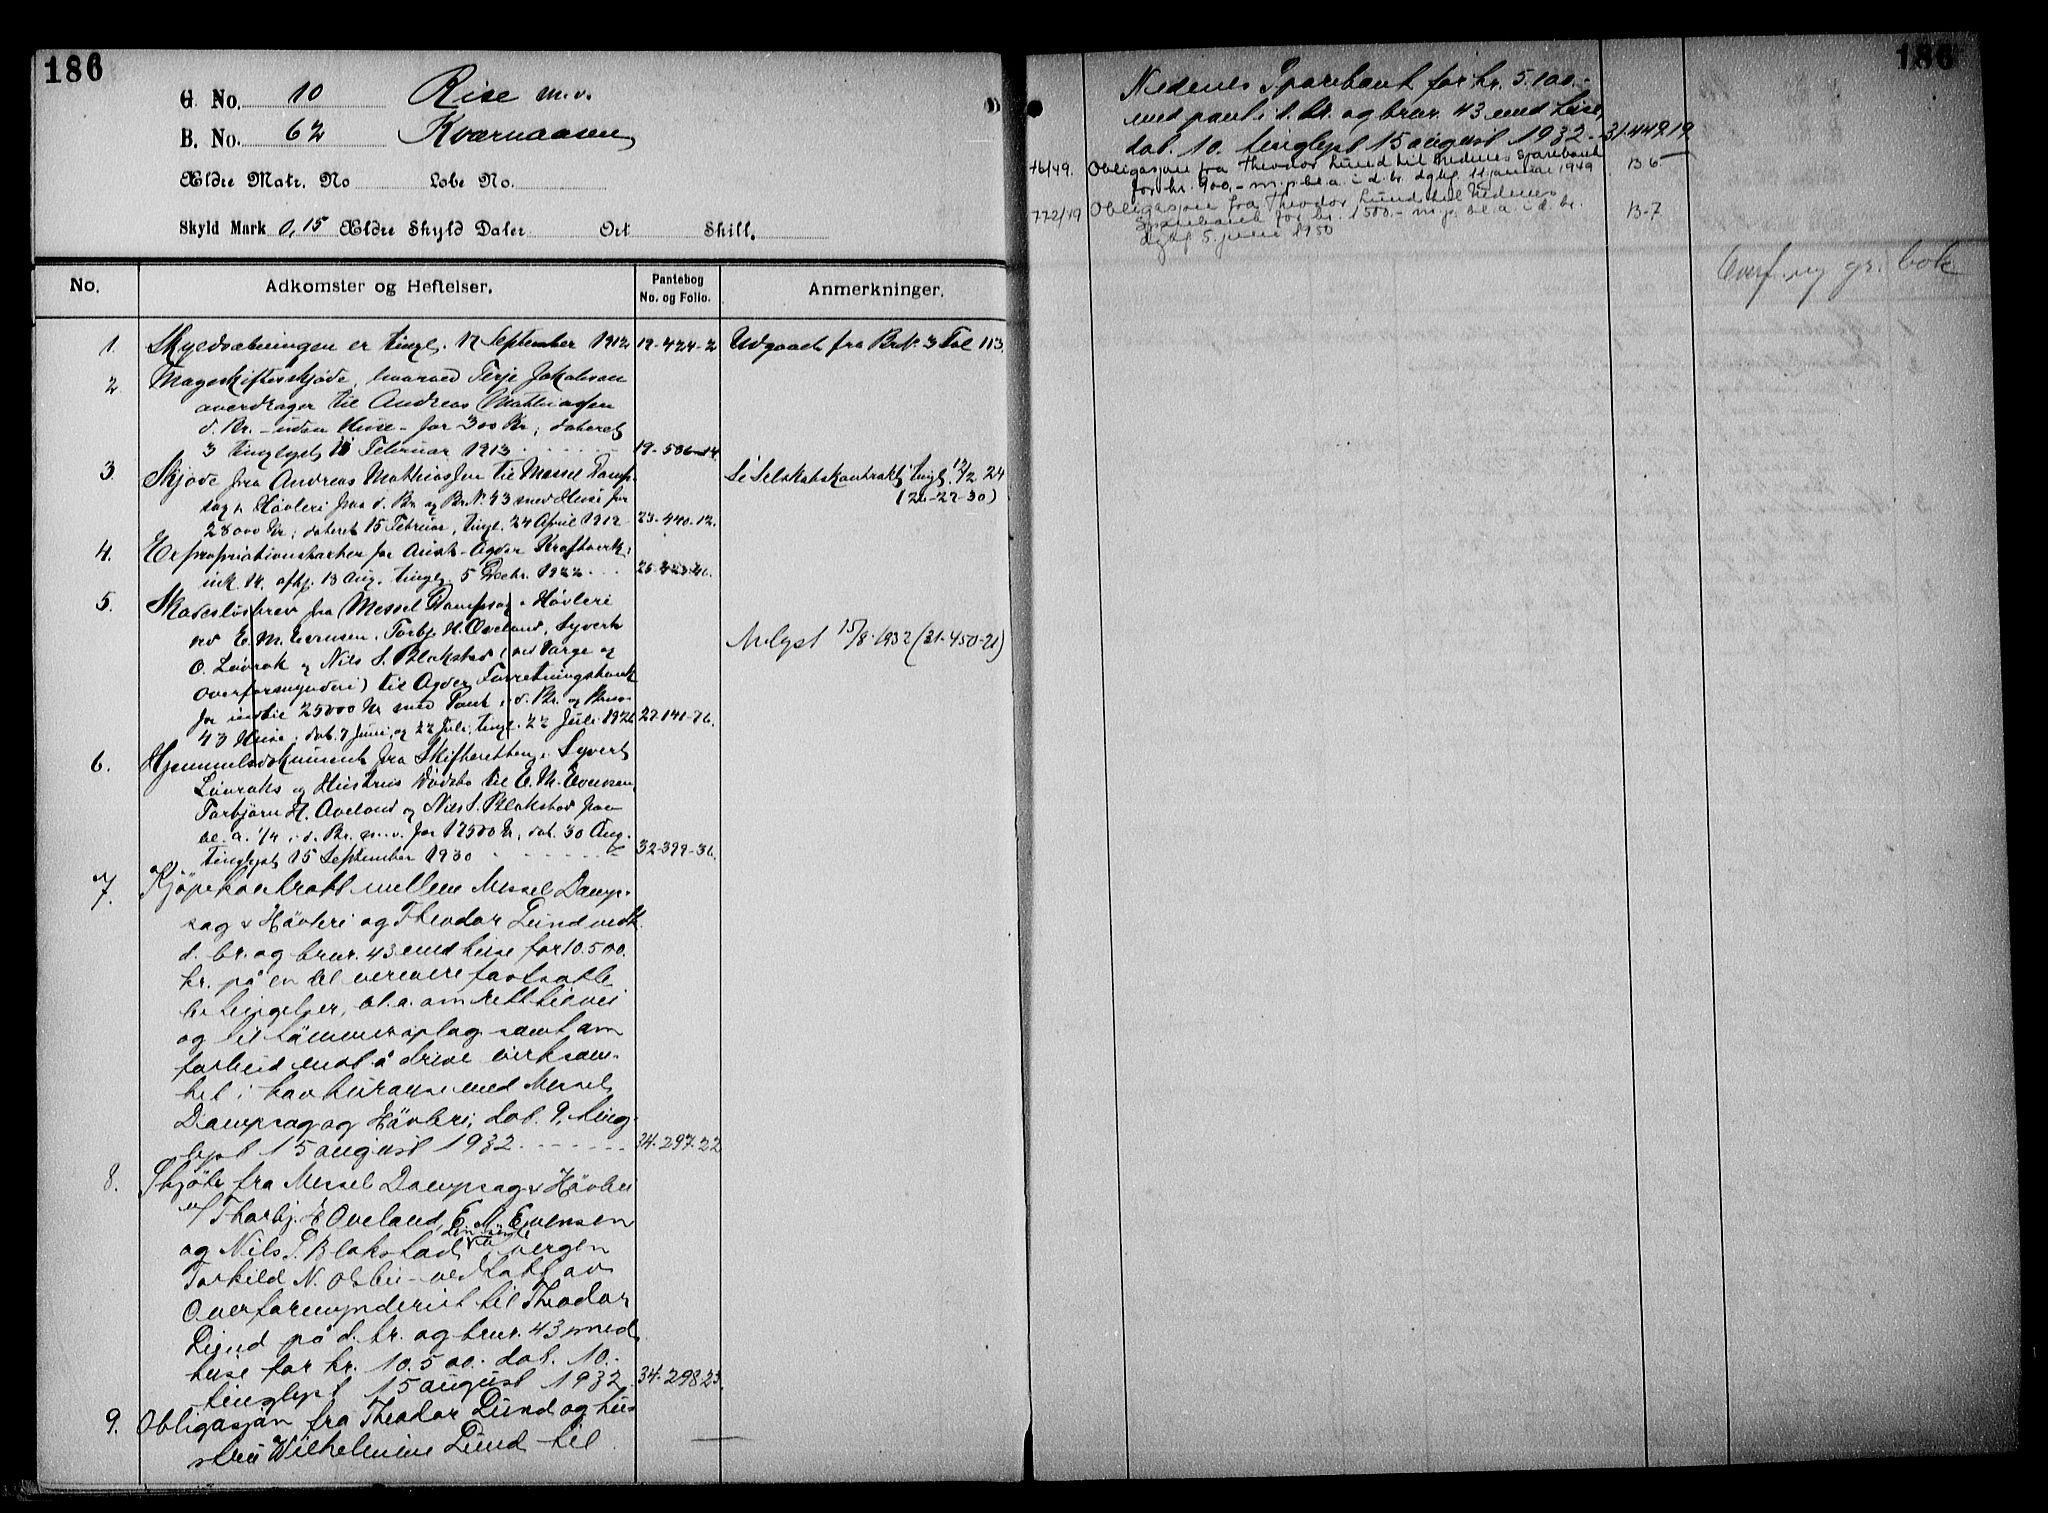 186
G. No. 10 Rise m.v.
B. No. 62 Kværnaasen
Ældre Matr. No Løbe No.
Skyld Mark 0,15 Ældre Skyld Daler Ort Skill.
No. Adkomster og Heftelser. Pantebog No. og Folio. Anmerkninger.
1. Skyldsætningen er tingl. 17 September 1912 19-424-2 Udgaaet fra Br.N. 3 Fol 113.
2 Mageskifteskjøde, hvorved Terje Jakobsen
overdrager til Andreas Mathiassen
d. Br. - uden Huse - for 300 Kr; dateret
3 tinglyst 11 Februar 1913 19-506-14.
3. Skjøde fra Andreas Mathiassen til Messel Damp-
sag & Høvleri paa d. Br og Br.N. 43 med Huse for
28000 Kr; dateret 15 Februar, tingl. 24 April 1919 23-440-12.
Se Selskabskontrakt, tingl. 12/2 24
(26-27-30)
4. Expropriationskarter for Aust-Agder Kraftverk;
ink. 14. afhj. 13 Aug. tingl. 5 Decbr. 1922 25-423-46.
5. Skadesløsbrev fra Messel Dampsag & Høvleri
ved E. M. Evensen, Torbj. H. Oveland, Syvert
O. Løvrak og Nils S. Blakstad (ved Værge og
Overformynderi) til Agder Forretningsbank
for indtil 25000 Kr med Pant i d. Br. og Brno
43 Huse; dat. 7 Juni og 22 Juli, tingl. 22 Juli 1926 27-141-76.
Avlyst 15/8-1932 (31-450-21)
6. Hjemmelsdokument fra Skifteretten i Syvert
Løvraks og Hustrus Dødsbo til E. M. Evensen,
Torbjørn H. Oveland og Nils S. Blakstad paa
bl. a. 1/4 i d. Br. m.v. for 17500 Kr, dat. 30 Aug.
tinglyst 15 September 1930 32-399-36.
7. Kjøpekontrakt mellem Messel Damp-
sag & Høvleri og Theodor Lund vedk.
d. br. og brnr. 43 med huse for 10.500.
kr. på en del nærmere fastsatte
betingelser, bl.a. om rett til vei
og til tømmeroplag samt om
forbud mot å drive virksom-
het i konkuranse med Messel
Dampsag og Høvleri; dat. 9, ting-
lyst 15 august 1932 34-297-22
8. Skjøte fra Messel Dampsag & Høvleri
v/ Thorbj. H Oveland, E. M. Evensen
og Nils S. Blakstad vergen
Torkild N. Olsbu - vedtatt av
Overformynderiet til Theodor
Lund på d. br. og brnr. 43 med
huse for kr. 10.500.- dat. 10.-
tinglyst 15 august 1932. 34-298-23.
9. Obligasjon fra Theodor Lund og hus
stru Wilhelmine Lund til
186
Nedenes Sparebank for kr. 5.100.-
med pant i d. br. og brnr. 43 med huse,
dat. 10. tinglyst 15 august 1932 - 31.449.19
76/49. Obligasjon fra Theodor Lund til Nedenes Sparebank
for kr. 900,- m.p. bl.a. i d. br. dgbf. 11 januar 1949 13-6
772/49 Obligasjon fra Theodor Lund til Nedenes
Sparebank for kr. 1500,- m.p. bl.a. i d. br.
dgbf. 5. juni 1950 13-7
Overf. ny gr. bok